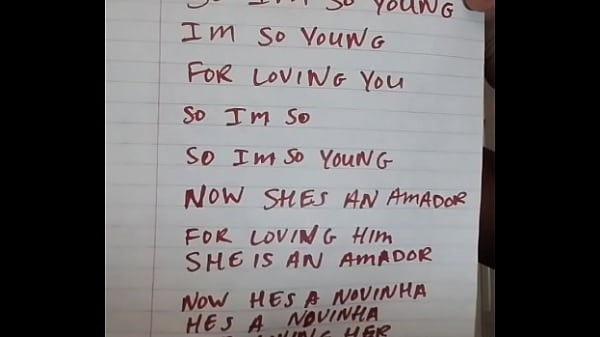 SO I'M SO YOUNG
IM SO YOUNG
FOR LOVING YOU
SO IM SO
SO IM SO YOUNG
NOW SHES AN AMADOR
FOR LOVING HIM
SHE IS AN AMADOR
NOW HES A NOVINHA
HES A NOVINHA
LOVING HER